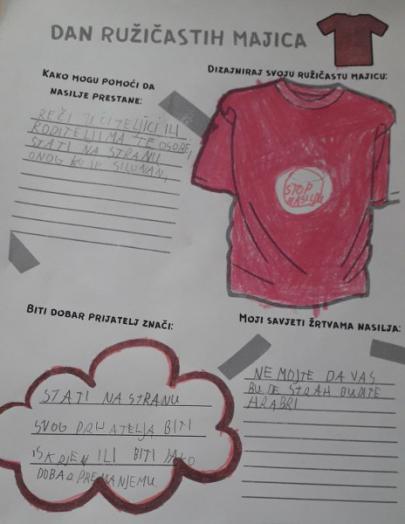 DAN RUŽIČASTIH MAJICA
KAKO MOGU POMOĆI DA
NASILJE PRESTANE:
REČI UČITELJICI ILI
RODITELJIMA TE OSOBE,
STATI NA STRANU
ONOG KO JE
DIZAJNIRAJ SVOJU RUŽIČASTU MAJICU:
STOP
NASILJU
BITI DOBAR PRIJATELJ ZNAČI:
STATI NA STRANU
SVOG PRIJATELJA BITI
ISKREN ILI BITI JAKO
DOBAR PREMA NJEMU
MOJI SAVJETI ŽRTVAMA NASILJA:
NE MOJTE DA VAS
BUDE STRAH BUDITE
HRABRI